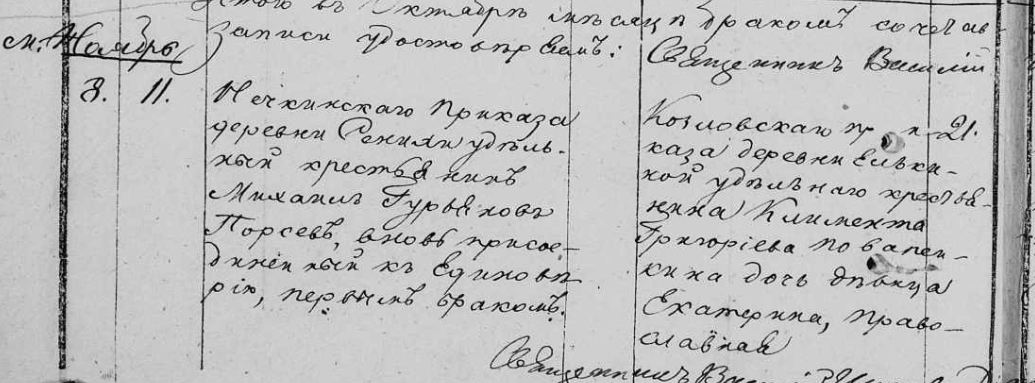 въ Октябрѣ мѣсяцѣ бракомъ сочетав
записи удостовѣряемъ:
Священникъ Василій
Ноябрь
8. 11.
Нечкинскаго Приказа
деревни удѣль-
ный крестьянинъ
Михаилъ Гурьяновъ
Порсевъ, вновь присое-
диненный къ Единовѣ
рію, первымъ бракомъ.
Козловскаго При- 21.
каза деревни Ельки-
ной удѣльнаго крестья-
нина Климента
Григоріева
кина дочь дѣвица
Екатерина, право-
славная
Священникъ